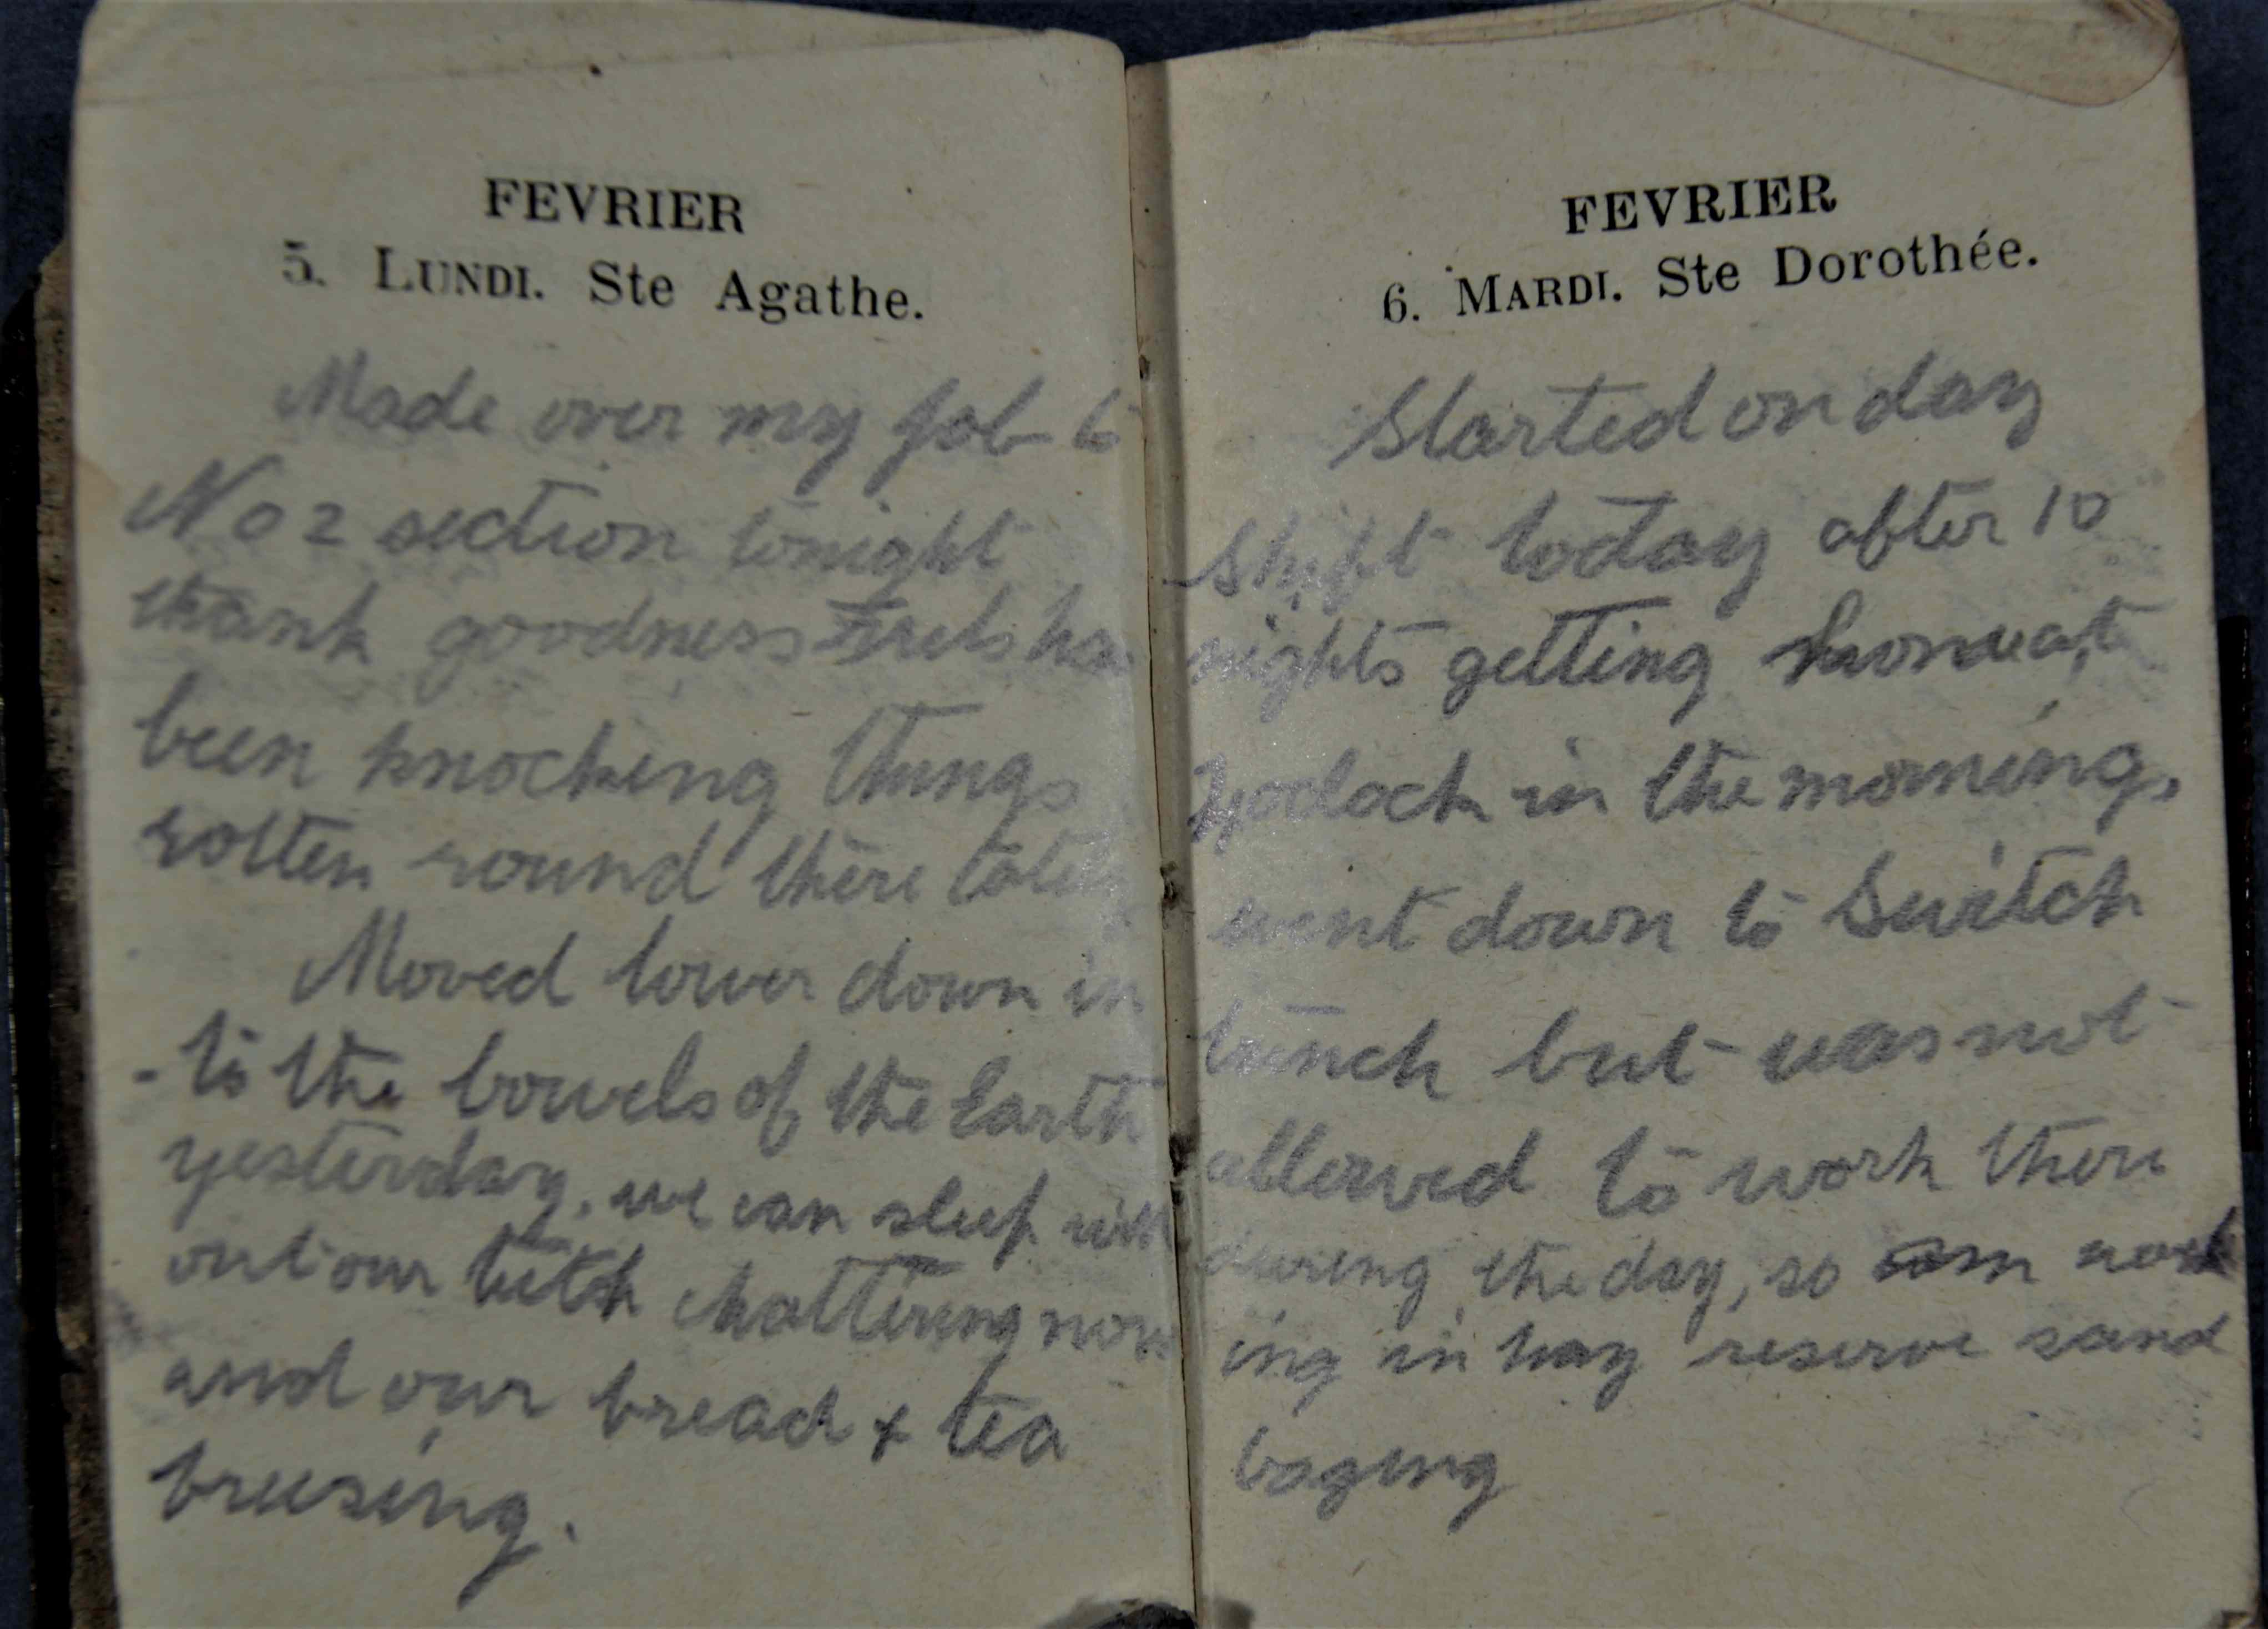 FEVRIER
5. LUNDI. Ste Agathe.
Made over my job to
No 2 section tonight
thank goodness has
been knocking things
rotten round there lately
Moved lower down in
-to the bowels of the Earth
yesterday, we can sleep with
out our teeth chattering now
and our bread & tea
freesing.
FEVRIER
6. MARDI. Ste Dorothée.
Started on day
shift today after 10
nights getting home at
7 oclock in the morning,
went down to Switch
trench but was not
allowed to work there
during the day, so am work
ing in hay reserve sand
baging